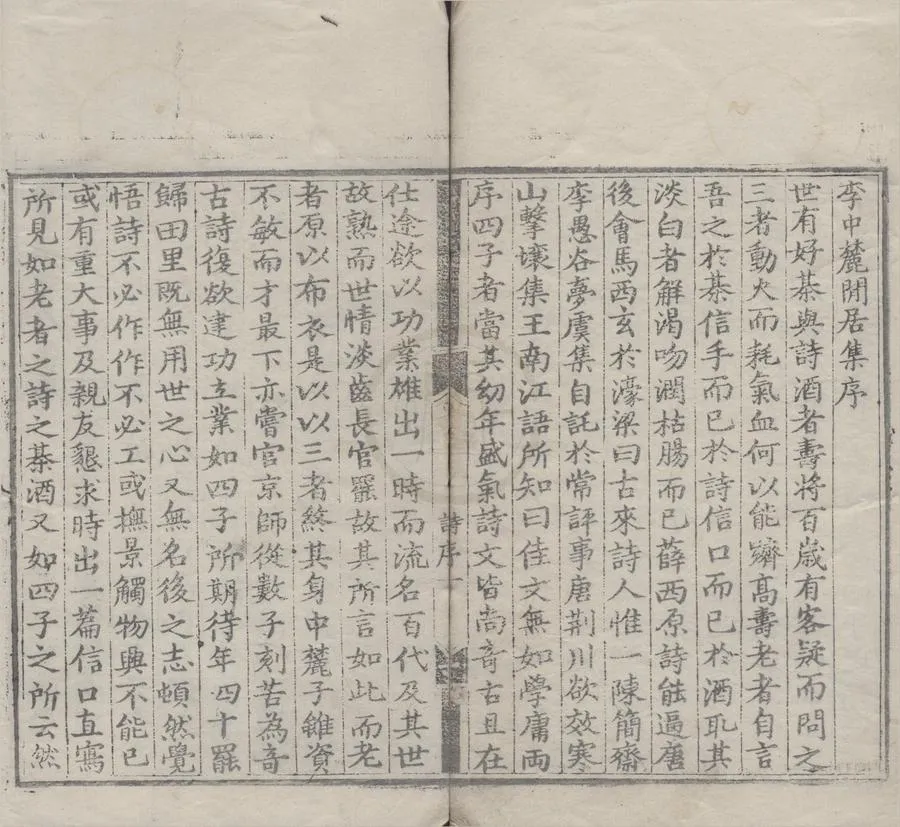 李中麓閒居集序
世有好棊與詩酒者壽將百歲有客疑而問之
三者動火而耗氣血何以能躋高壽老者自言
吾之於棊信手而已於詩信口而已於酒取其
淡白者解渴吻潤枯腸而已薛西原詩能逼唐
後會馬西玄於濠梁曰古來詩人惟一陳簡齋
李愚谷夢虞集自託於常評事唐荆川欲效寒
山擊壤集王南江語所知曰佳文無如學庸兩
序四子者當其幼年盛氣詩文皆尚奇古且在
詩序 一
仕途欲以功業雄出一時而流名百代及其世
故熟而世情淡齒長官罷故其所言如此而老
者原以布衣是以以三者煞其身中麓子雖資
不敏而才最下亦嘗官京師從數子刻苦為奇
古詩復欲建功立業如四子所期待年四十罷
歸田里既無用世之心又無名後之志頓然覺
悟詩不必作作不必工或撫景觸物興不能已
或有重大事及親友懇求時出一篇信口直寫
所見如老者之詩之棊酒又如四子之所云然